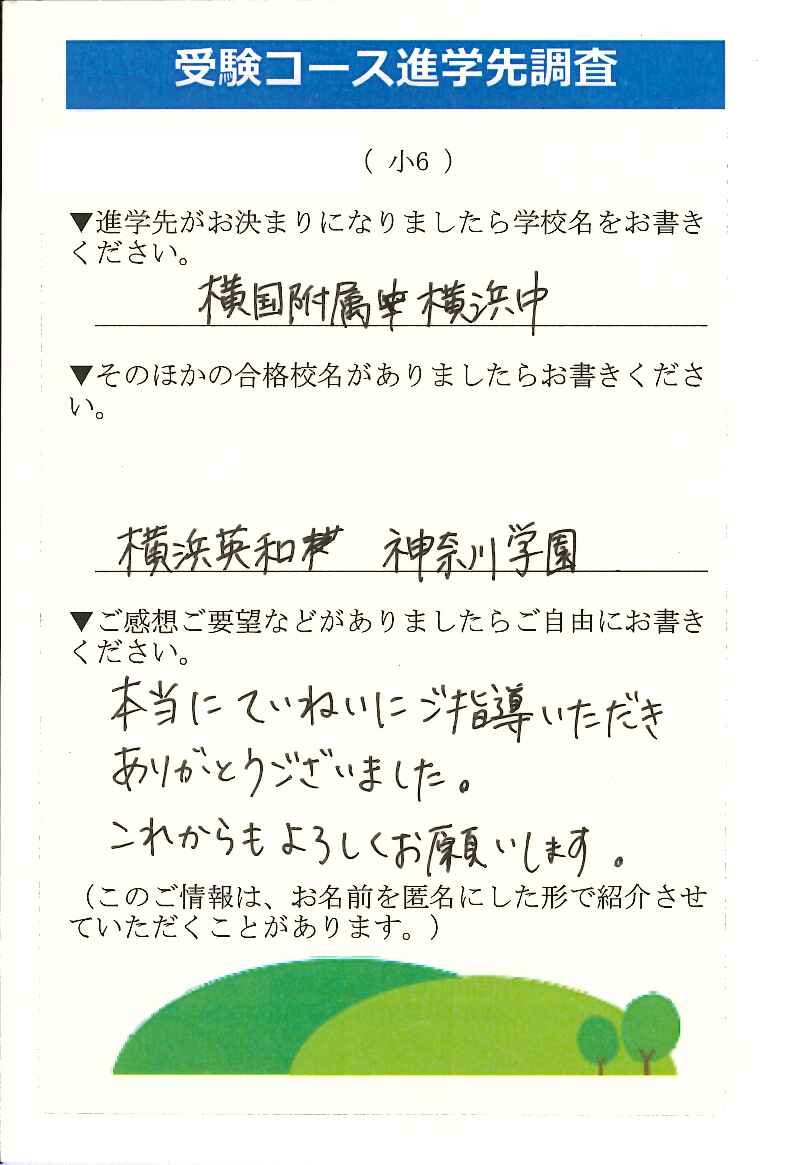 受験コース進学先調査
( 小6 )
▼進学先がお決まりになりましたら学校名をお書き
ください。
横国附属 横浜中
▼そのほかの合格校名がありましたらお書きくださ
い。
横浜英和 神奈川学園
▼ご感想ご要望などがありましたらご自由にお書き
ください。
本当にていねいにご指導いただき
ありがとうございました。
これからもよろしくお願いします。
（このご情報は、お名前を匿名にした形で紹介させ
ていただくことがあります。）